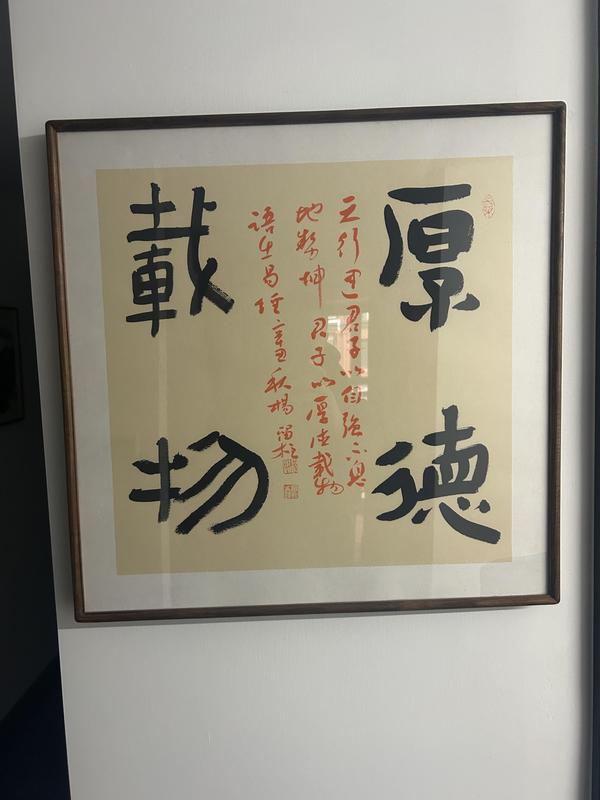 厚德
天行建君子以自強不息
地勢坤君子以厚德載物
語出易經辛丑秋楊留
載物